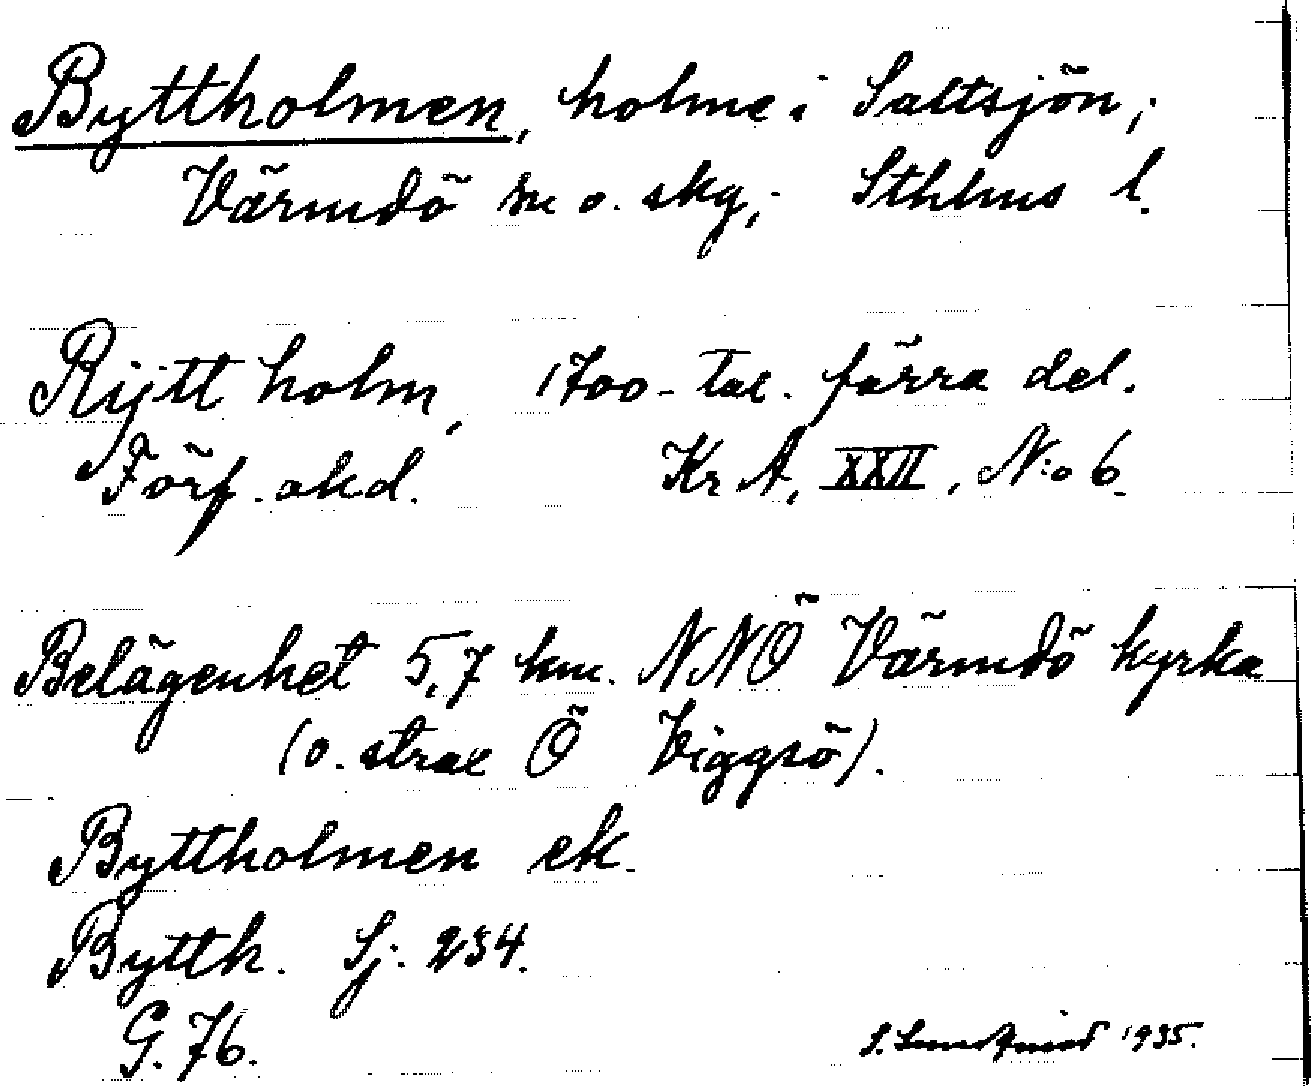 Byttholmen, holme i Saltsjön;
Värmdö sn o. skg; Sthlms l.
Rijtt holm, 1700-tal. förra del.
Förf. okd. Kr A, XXII, N:o 6.
Belägenhet 5,7 km. NNÖ Värmdö kyrka
(o. strax Ö Viggsö).
Byttholmen ek.
Byttk. Sj. 234.
G. 76.
S. 1935.